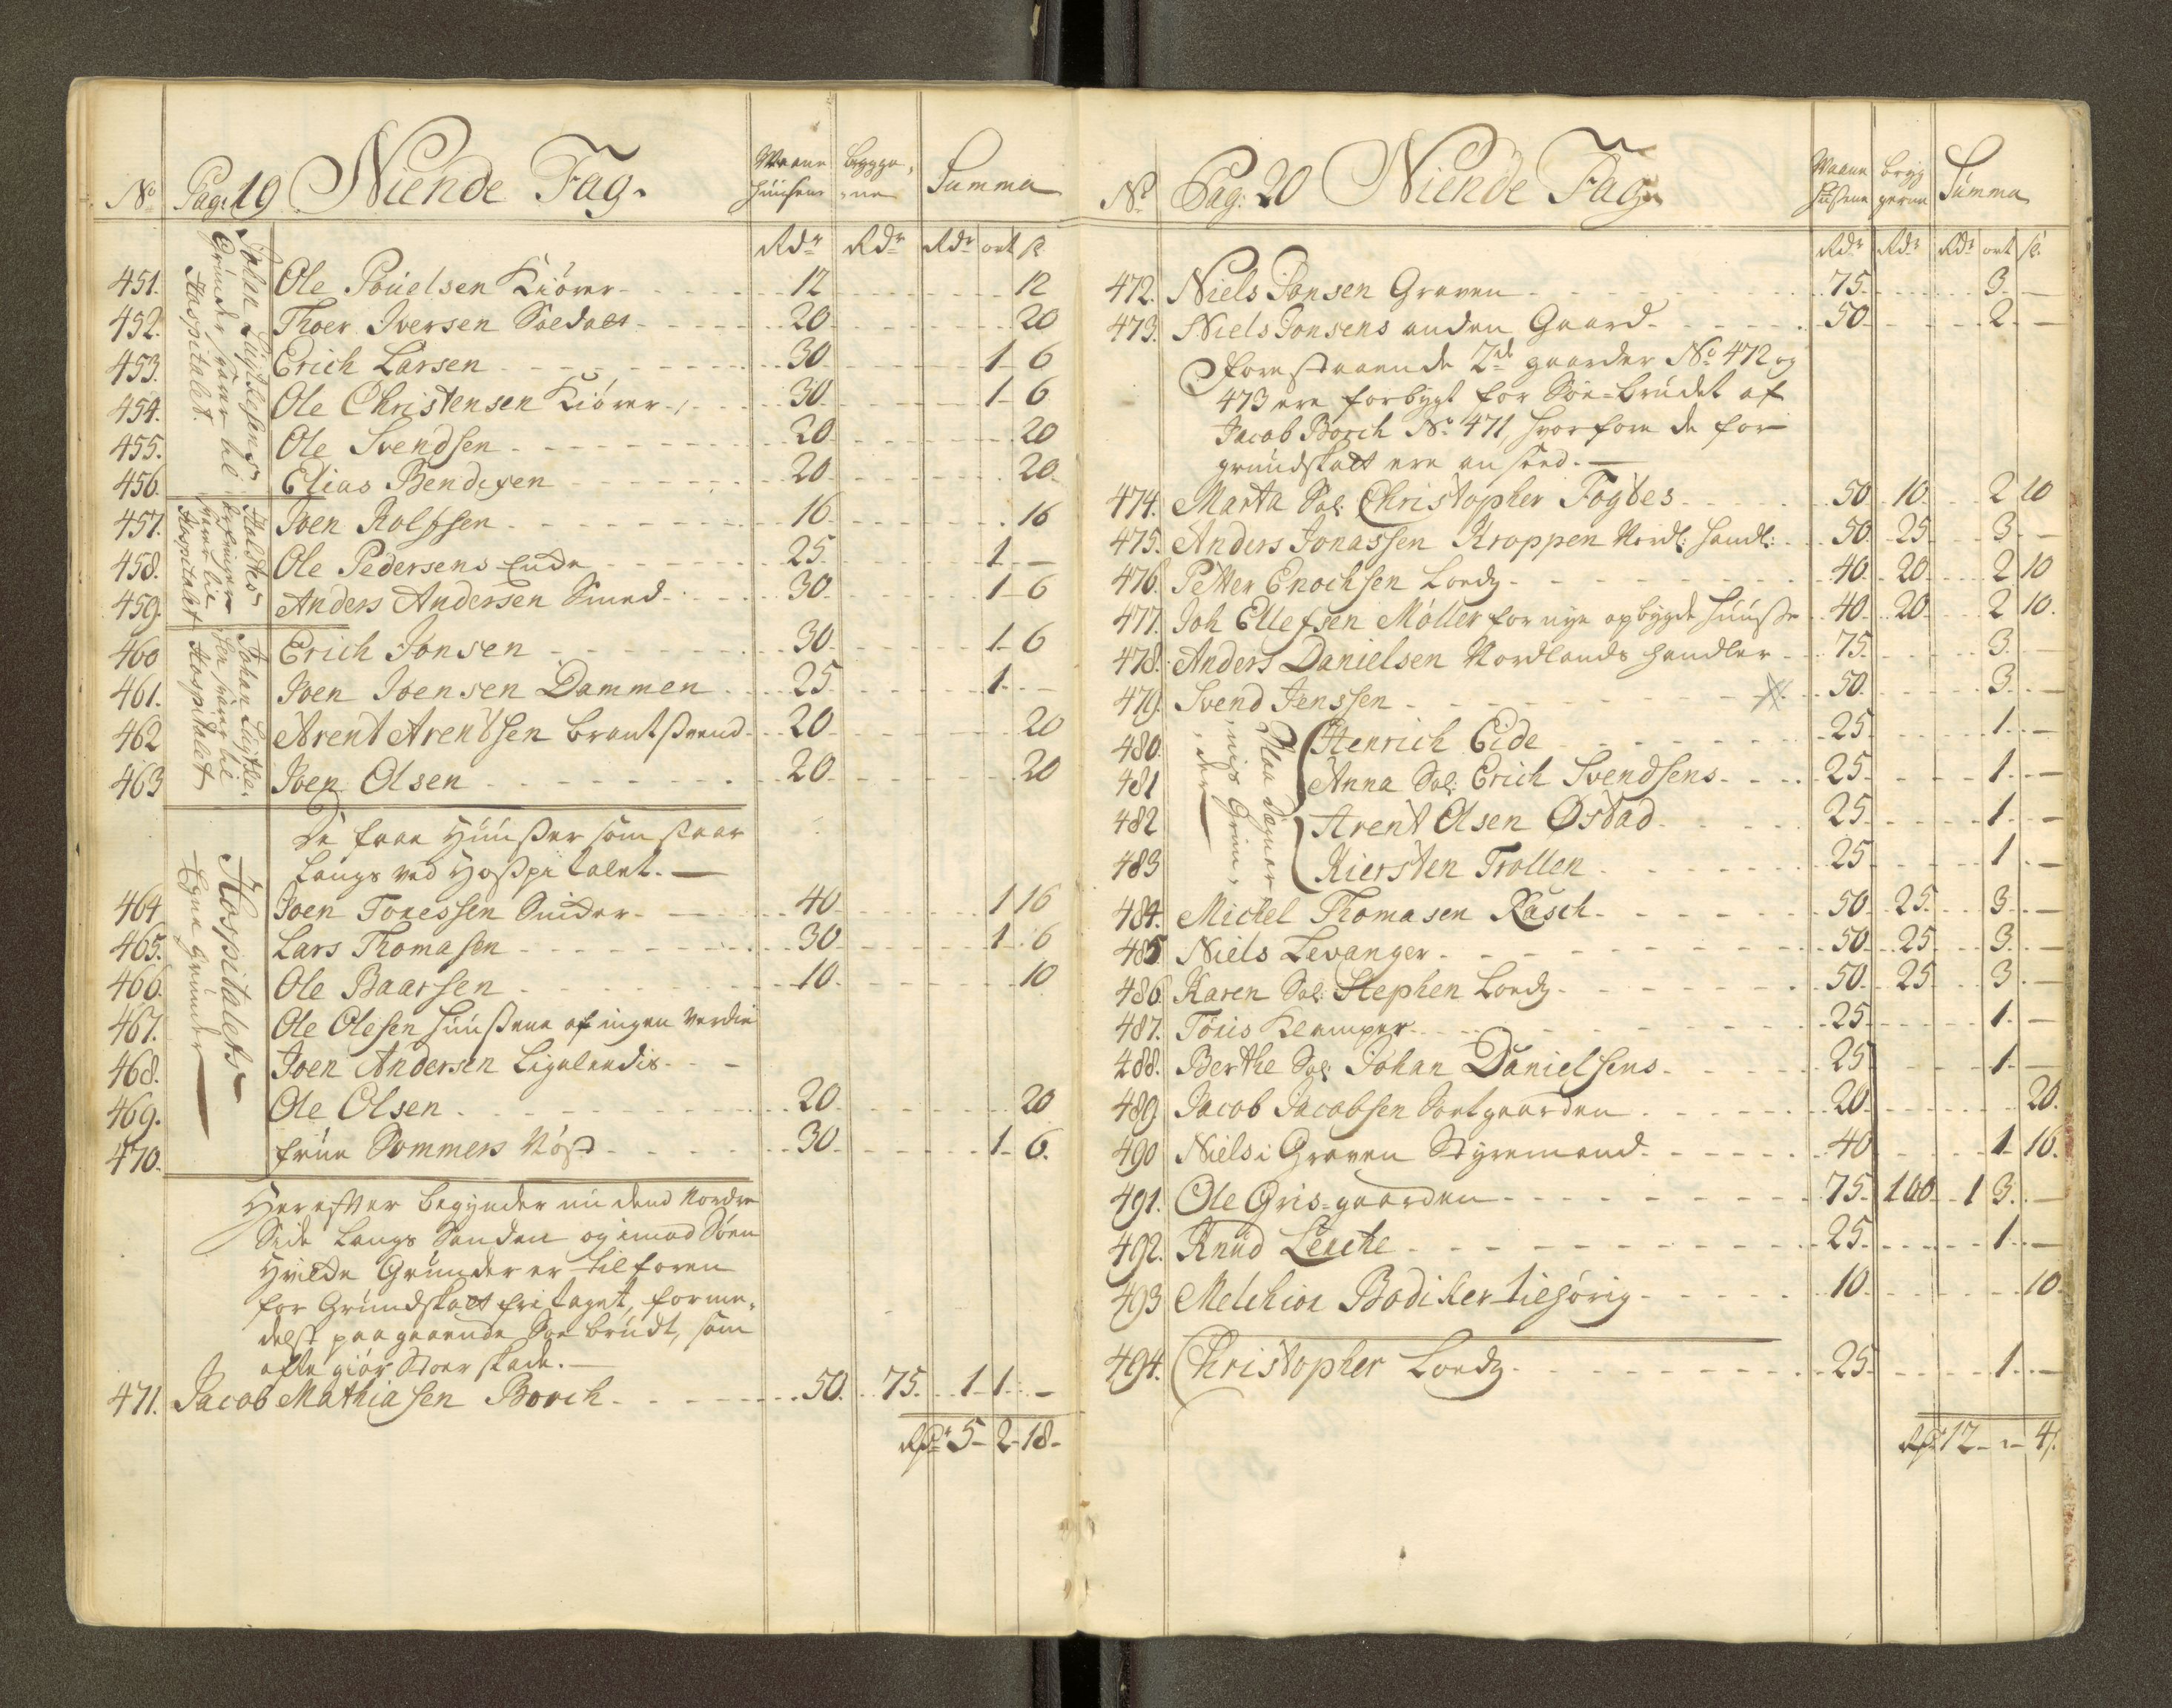 No Pag: 19 Niende Fag. Waane huusene brygge,,rne Summa
Rdr Rdr Rdr ort s
Johan Lüytkesens
Grunder svarer til
Hospitalet.
451. Ole Pouelsen Kiører 12 12
452. Thoer Iversen Soldatt 20 20
453. Erich Larsen 30 1 6
454. Ole Christensen Kiører 30 1 6
455. Ole Svendsen 20 20
456. Elias Bendixen 20 20
svarer til
Hospitalet
457. Joen Rolfsen 16 16
458. Ole Pedersens Encke 25 1 -
459. Anders Andersen Smed 30 1 6
Johan Lüytke,
sen svarer til
Hospitalet
460 Erich Jonsen 30 1 6
461. Joen Joensen Dammen 25 1 -
462 Arent Arentsen brantsvend 20 20
463 Joen Olsen 20 20
De faae Huusser som staar
langs ved Hosspitalet. —
Hospitalets
Egne grunder
464 Joen Tonessen Snider 40 1 16
465. Lars Thomasen 30 1 6
466. Ole Baarsen 10 10
467. Ole Olesen huussene af ingen verdie
468. Joen Andersen Ligeleedis
469. Ole Olsen 20 20
470. frue Sommers Nøst 30 1 6.
Herefter begynder nu dend Nordre
Side langs Sanden og imod Søen
Hvilcke Grunder er tilforen
for Grundskatt fritaget, forme,
delst paagaaende Søe brudt, som
ofte giør stoer skade. —
471. Jacob Mathiasen Borch 50. 75. 1 1 -
Rdr 5 - 2 - 18 -
No Pag: 20 Niende Fag. Waane husene bryg gerne Summa
Rdr Rdr Rdr ort s
472. Niels Jonsen Graven 75 3 -
473. Niels Jonsens anden Gaard 50 2 -
Forestaaende 2de gaarder No 472 og
473 ere forbygt for Søe-brudet af
Jacob Borch No 471, hvorfore de for
grundskatt ere anseed. —
474. Marta Sal. Christopher Fogtes 50 10 2 10
475. Anders Jonassen Kroppen Nordl: handl: 50 25 3 -
476. Petter Enochsen Lordz 40 20 2 10
477. Joh Ellefsen Møller for nye opbygde huusse 40 20 2 10.
478. Anders Danielsen Nordlands handler 75 3. -
479. Svend Jenssen 50 3. -
480. Henrich Eide 25 1 -
481 Anna Sal. Erich Svendsens 25 1 -
482 Arent Olsen Østad 25 1 -
483 Kiersten Trollen 25 1 -
484. Michel Thomasen Rasch 50 25 3 -
485 Niels Levanger 50 25 3 -
486. Karen Sal. Stephen Lordz 50 25 3 -
487. Tønis Klemper 25 1 -
488. Berthe Sal. Johan Danielsens 25 1 -
489 Jacob Jacobsen Sortgaarden 20 20.
490 Niels i Graven Styremand 40 1 16.
491. Ole Gris-gaarden 75 100 1 3. -
492. Knud Lerche 25 1 -
493 Melchior Bødiker tilhørig 10 10.
494. Christopher Lordz 25 1 -
Rdr 12 - „ - 4.